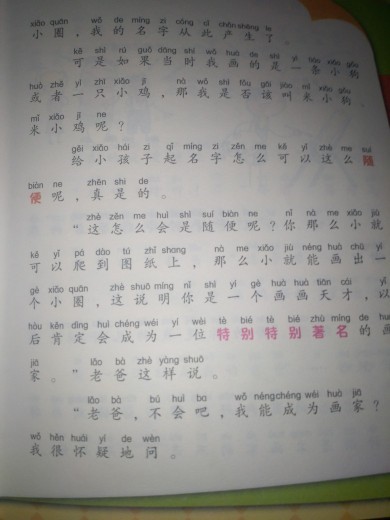 xiǎo quān wǒ de míng zi cóng cǐ chǎn shēng le
小圈，我的名字从此产生了。
kě shì rú guǒ dāng shí wǒ huà de shì yì tiáo xiǎo gǒu
可是如果当时我画的是一条小狗
huò zhě yì zhī xiǎo jī nà wǒ shì fǒu gāi jiào mǐ xiǎo gǒu
或者一只小鸡，那我是否该叫米小狗、
mǐ xiǎo jī ne
米小鸡呢？
gěi xiǎo hái zi qǐ míng zi zěn me kě yǐ zhè me suí
给小孩子起名字怎么可以这么随
biàn ne zhēn shi de
便呢，真是的。
zhè zěn me huì shì suí biàn ne nǐ nà me xiǎo jiù
“这怎么会是随便呢？你那么小就
kě yǐ pá dào tú zhǐ shang nà me xiǎo jiù néng huà chū yí
可以爬到图纸上，那么小就能画出一
gè xiǎo quān zhè shuō míng nǐ shì yí gè huà huà tiān cái yǐ
个小圈，这说明你是一个画画天才，以
hòu kěn dìng huì chéng wéi yí wèi tè bié tè bié zhù míng de huà
后肯定会成为一位特别特别著名的画
jiā lǎo bà zhè yàng shuō
家。”老爸这样说。
lǎo bà bú huì ba wǒ néng chéng wéi huà jiā
“老爸，不会吧，我能成为画家？”
wǒ hěn huái yí de wèn
我很怀疑地问。